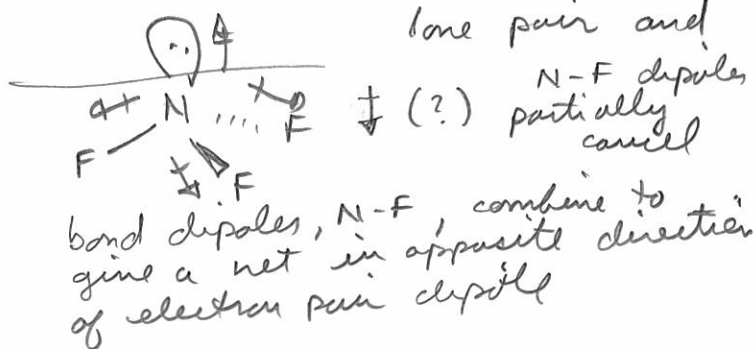 lone pair and
N-F dipoles
(?) partially
cancel
N
F
F
F
bond dipoles, N-F, combine to
give a net in opposite direction
of electron pair dipole